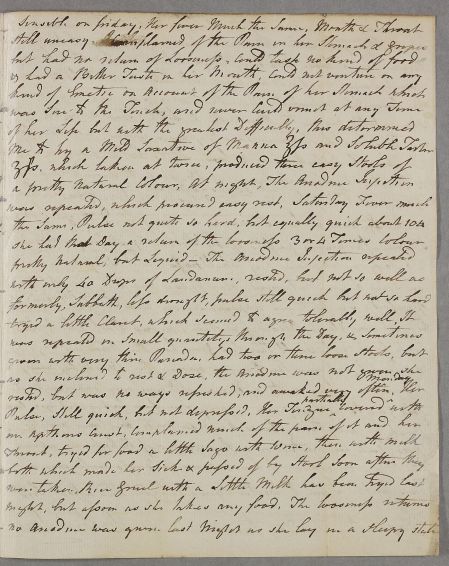 Sensible on friday, Her fever Much the Same, Mouth & Throat
Still uneasy Complained of the Pain in her Stomach &
but had no return of Looseness, Could Eat no kind of food
or had a Better Taste in her Mouth, Could not venture on any
kind of Emetic on Account of the Pain of her Stomach which
was Sore to the Touch, and never Could vomit at any Time
of her Life but with the greatest Difficulty, this determined
Me to try a Mild Laxative of Manna ℥fs and Soluble Tartar
ʒfs, which taken at twice, produced three easy Stools of
a pretty Natural Colour, At night, The Anodine Injection
was repeated, which procured easy rest, Saturday Fever much
the Same, Pulse not quite so hard, but equally quick about 104
She had that Day a return of the looseness 3 or 4 Times Colour
pretty Natural, but Liquid— The Anodine Injection repeated
with only 40 Drops of Laudanum, rested, but not so well as
formerly, Sabbath, less drought, pulse Still quick but not so hard
tryed a little Claret, which Seemed to agree tolerably well, It
was repeated in Small quantitys through the Day, & Sometimes
given with very thin Panada, had two or three loose Stools, but
as she inclined to rest & Dose, the Anodine was not given, She
rested, but was no ways refreshed, and awaked very often, Monday Her
Pulse, Still quick, but not depressed, Her Tongue partially Covered with
an Apthous Crust, Complained much of the pain of it and her
Throat, tryed for food a little Sago with wine, then with milk
both which made her Sick & passed of by Stool Soon after they
were taken, Rice Gruel with a Little Milk has been tryed last
Night, but as soon as she takes any food, The looseness returns
no Anodine was given last Night as she lay in a Sleepy State